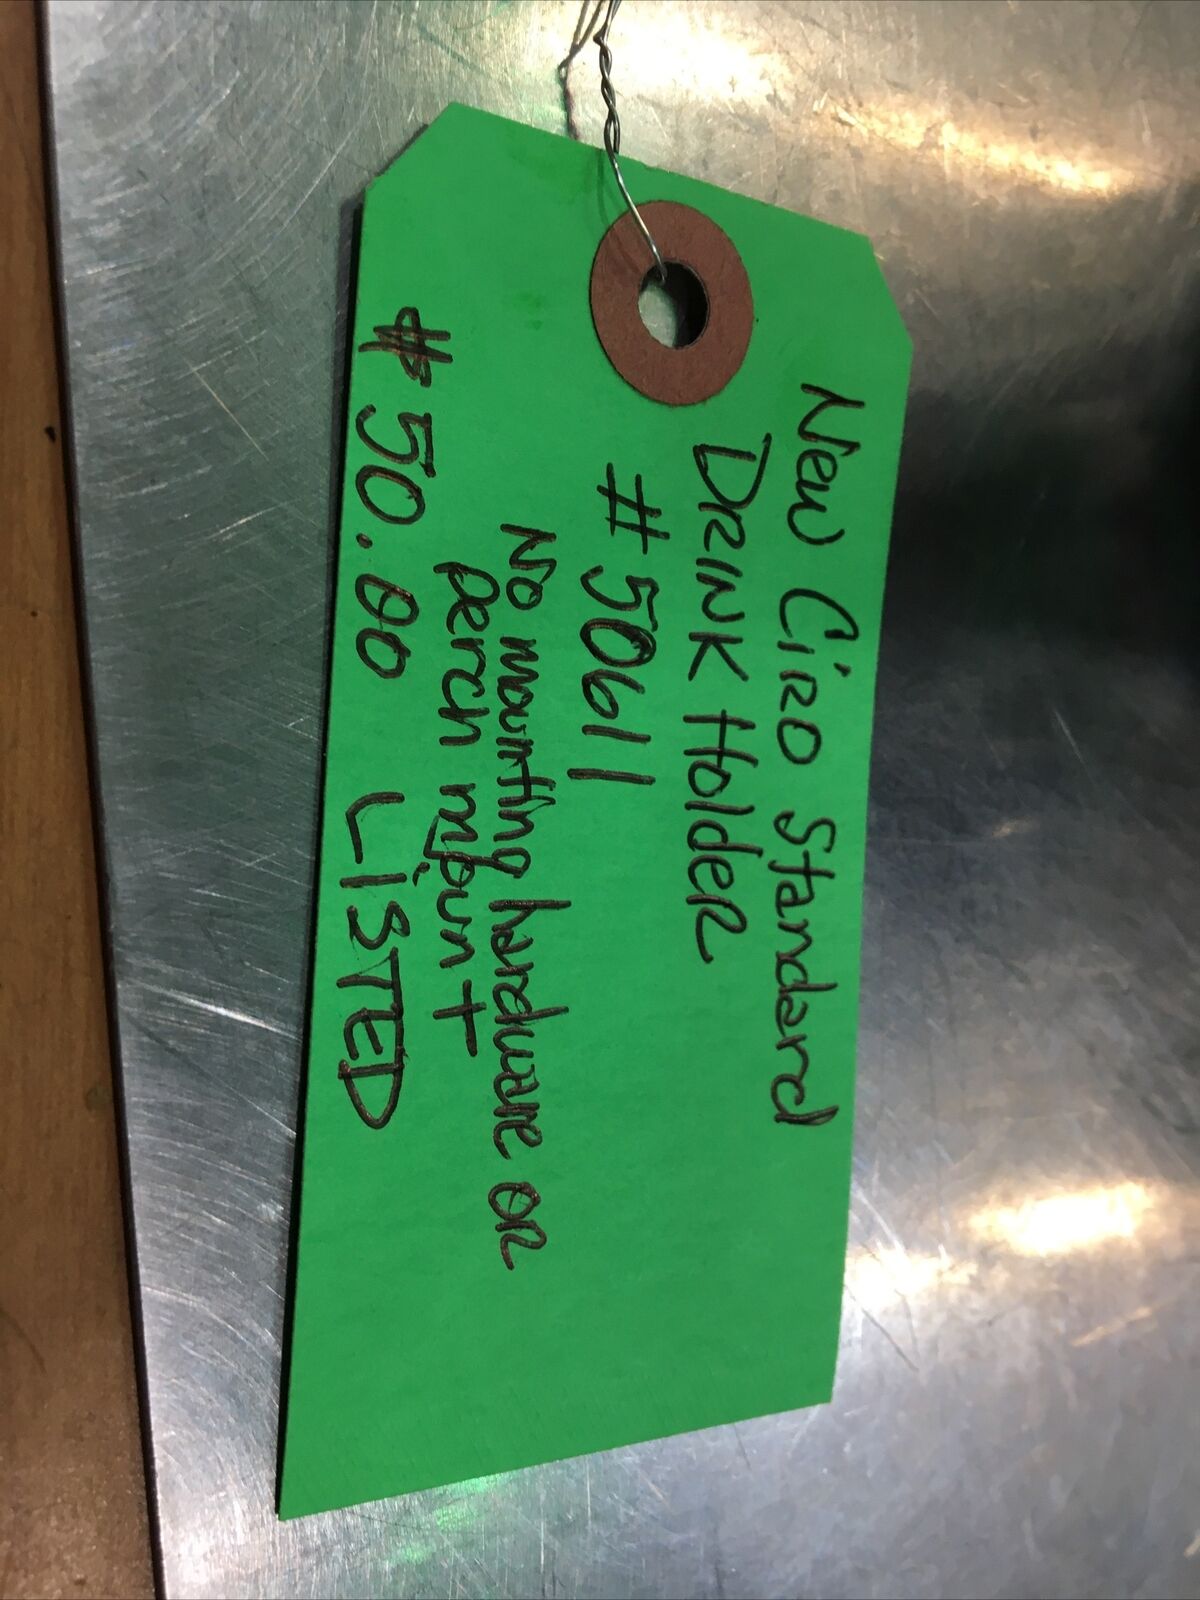 New Ciro Standard
DRINK HoldER
#50611
No mounting hardware OR
perch mount
$50.00 LISTED